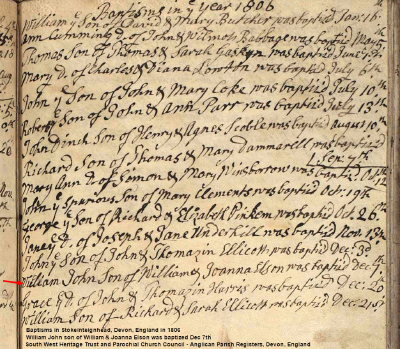 Baptisms in y Year 1806
William y Son of David & Mary Butcher was baptizd Jan: 16th
Ann Cumming D. of John & Wilmot Babbage was baptizd May 5th
Thomas Son of Thomas & Sarah Gaskyn was baptizd June 5th
Mary D. of Charles & Diana Lowton was baptizd July 6th
John y Son of John & Mary Coke was baptizd July 10th
Robert y Son of John & Ann Parr was baptizd July 13th
John Dinck Son of Henry & Agnes Scoble was baptizd August 10th
Richard Son of Thomas & Mary Dammarell was baptizd
Sep: 7th
Mary Ann D. of Simon & Mary Winsborrow was baptizd Oct: 12
John y Spurious Son of Mary Clements was baptizd Oct. 19th
George y Son of Richard & Elizabeth Pinkem was baptizd Oct. 26th
D. of Joseph & Jane Underhill was baptizd Nov: 13th
John y Son of John & Thomazin Ellicott was baptizd Dec: 3d
William John Son of William & Joanna Elson was baptizd Dec: 7
Grace D. of John & Thomazin Harris was baptizd Dec: 20
William Son of Richard & Sarah Ellicott was baptizd Dec: 21st
Baptisms in Stokeinteignhead, Devon, England in 1806
William John son of William & Joanna Elson was baptized Dec 7th
South West Heritage Trust and Parochial Church Council - Anglican Parish Registers, Devon, England